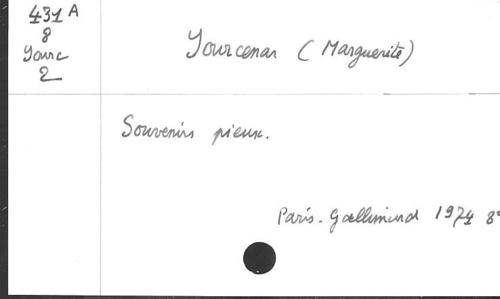 431 A
8
Yourc
2
Yourcenar (Marguerite)
Souvenirs pieux.
Paris. Gallimard 1974 8°